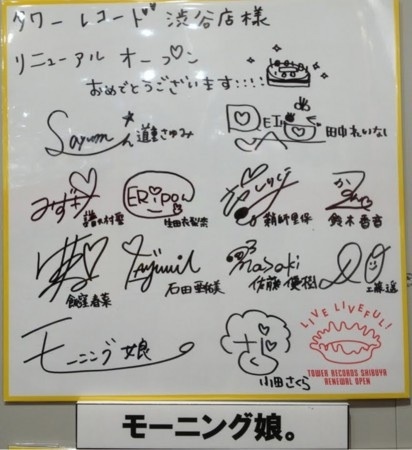 タワーレコード 渋谷店様
リニューアル オープン
おめでとうございます::::
Sayumi 道重さゆみ REINA 田中れいな
みずき 譜久村聖 ERIPON 生田衣梨奈 鞘師里保 鈴木香音
飯窪春菜 Ayumi 石田亜佑美 Masaki 佐藤優樹 工藤遥
モーニング娘
小田さくら
LIVE LIVEFUL!
TOWER RECORDS SHIBUYA
RENEWAL OPEN
モーニング娘。